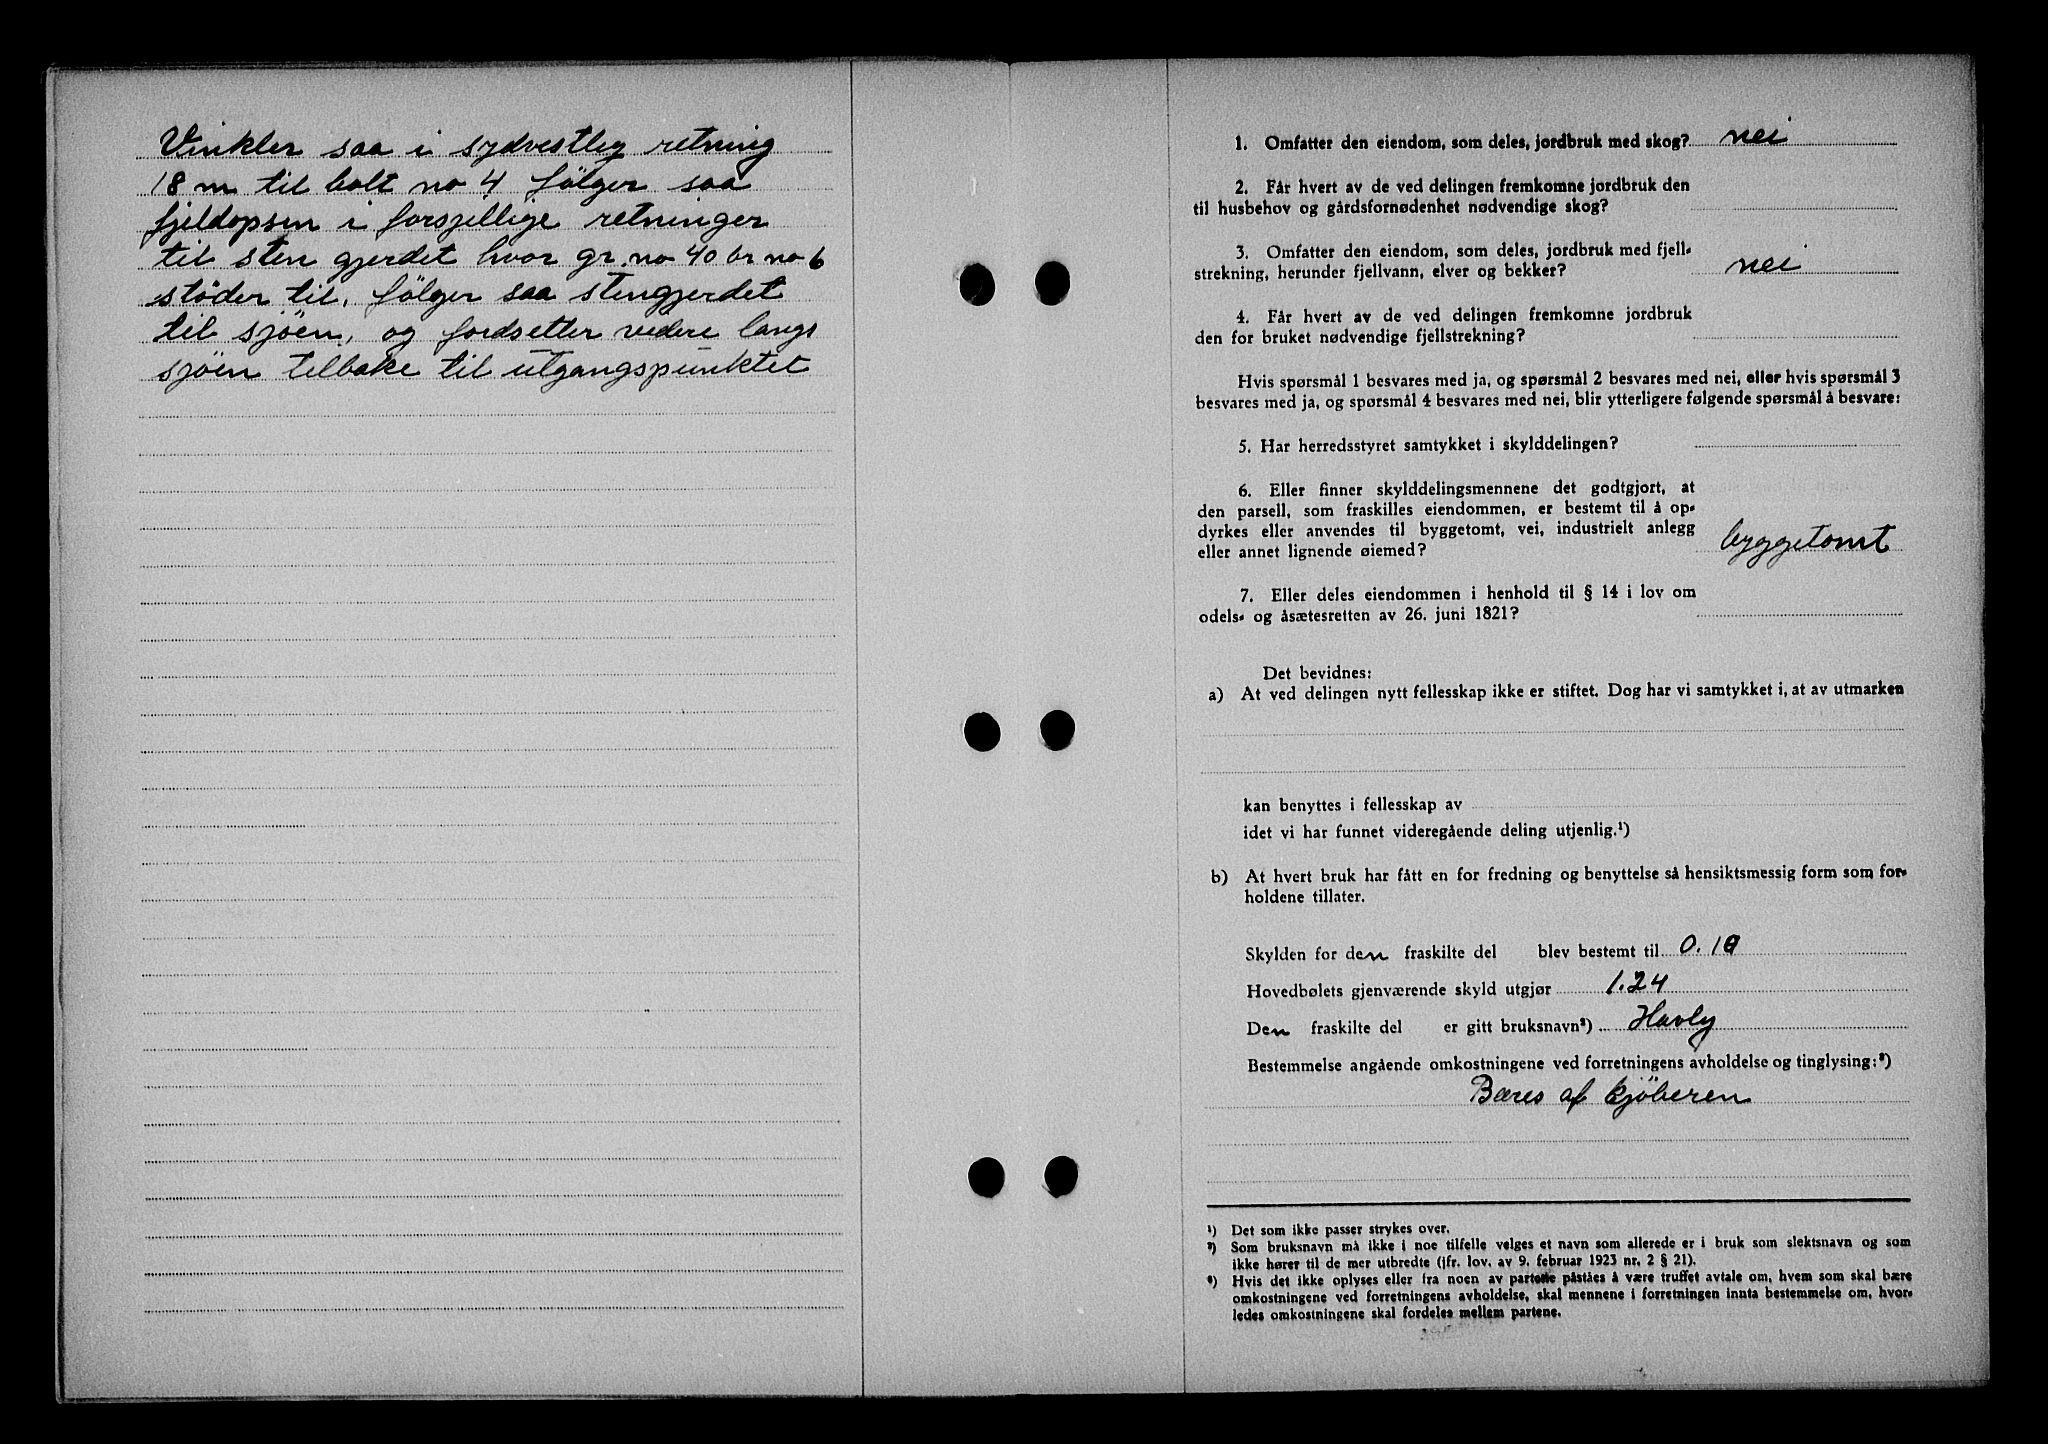 Vinkler saa i sydvestlig retning
18 m til bolt no 4 følger saa
fjeldopsen i forsjellige retninger
til sten gjerdet hvor gr. no 40 br no 6
støder til, følger saa stengjerdet
til sjøen, og fordsetter videre langs
sjøen tilbake til utgangspunktet
1. Omfatter den eiendom, som deles, jordbruk med skog? nei
2. Får hvert av de ved delingen fremkomne jordbruk den
til husbehov og gårdsfornødenhet nødvendige skog?
3. Omfatter den eiendom, som deles, jordbruk med fjell-
strekning, herunder fjellvann, elver og bekker? nei
4. Får hvert av de ved delingen fremkomne jordbruk
den for bruket nødvendige fjellstrekning?
Hvis spørsmål 1 besvares med ja, og spørsmål 2 besvares med nei, eller hvis spørsmål 3
besvares med ja, og spørsmål 4 besvares med nei, blir ytterligere følgende spørsmål å besvare:
5. Har herredsstyret samtykket i skylddelingen?
6. Eller finner skylddelingsmennene det godtgjort, at
den parsell, som fraskilles eiendommen, er bestemt til å op-
dyrkes eller anvendes til byggetomt, vei, industrielt anlegg
eller annet lignende øiemed? byggetomt
7. Eller deles eiendommen i henhold til § 14 i lov om
odels- og åsætesretten av 26. juni 1821?
Det bevidnes:
a) At ved delingen nytt fellesskap ikke er stiftet. Dog har vi samtykket i, at av utmarken
kan benyttes i fellesskap av
idet vi har funnet videregående deling utjenlig.¹)
b) At hvert bruk har fått en for fredning og benyttelse så hensiktsmessig form som for-
holdene tillater.
Skylden for den fraskilte del blev bestemt til 0.10
Hovedbølets gjenværende skyld utgjør 1.24
Den fraskilte del er gitt bruksnavn²) Havly
Bestemmelse angående omkostningene ved forretningens avholdelse og tinglysing:³)
Bæres af kjøberen
¹) Det som ikke passer strykes over.
²) Som bruksnavn må ikke i noe tilfelle velges et navn som allerede er i bruk som slektsnavn og som
ikke hører til de mer utbredte (jfr. lov. av 9. februar 1923 nr. 2 § 21).
³) Hvis det ikke oplyses eller fra noen av partene påståes å være truffet avtale om, hvem som skal bære
omkostningene ved forretningens avholdelse, skal mennene i forretningen innta bestemmelse om, hvor-
ledes omkostningene skal fordeles mellem partene.